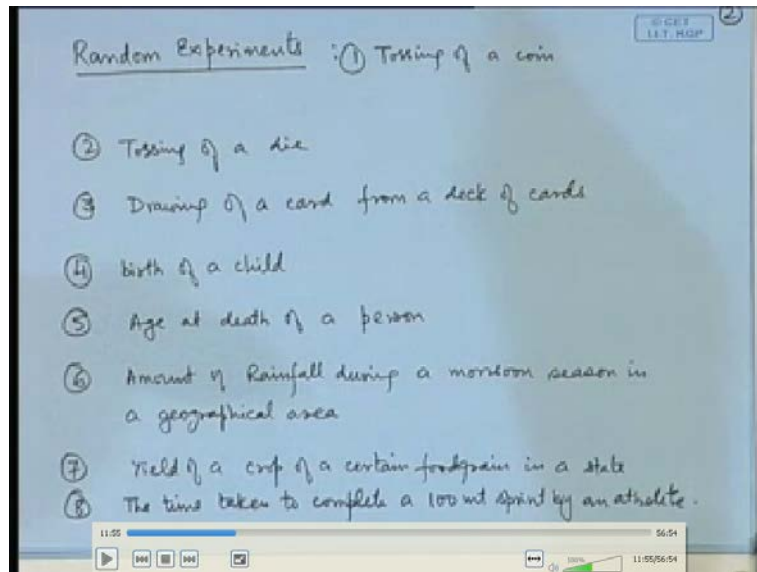 ②
© CET
I.I.T. KGP
Random Experiments : ① Tossing of a coin
② Tossing of a die
③ Drawing of a card from a deck of cards
④ birth of a child
⑤ Age at death of a person
⑥ Amount of Rainfall during a monsoon season in
a geographical area
⑦ Yield of a crop of a certain foodgrain in a state
⑧ The time taken to complete a 100 mt sprint by an athelite.
11:55 56:54
100% 11:55/56:54